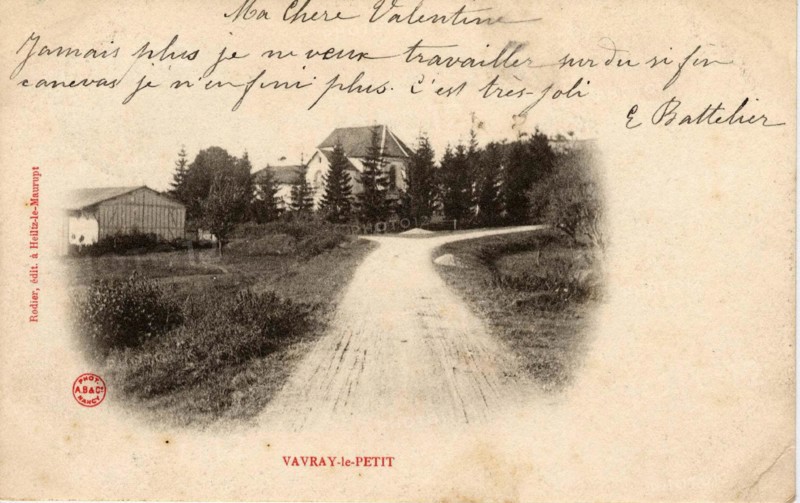 Ma Chère Valentine
Jamais plus je ne veux travailler sur du si fin
canevas je n'en fini plus. C'est très-joli
E Battelier
Rodier, édit. à Heiltz-le-Maurupt
PHOT.
A.B & Cie
NANCY
VAVRAY-le-PETIT